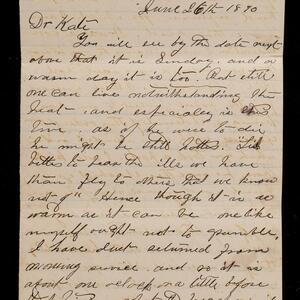 June 26th 1890
Dr Kate
You will see by the date next
above that it is Sunday. and a
warm day it is too. But still
one can live notwithstanding the
heat. and especially is this
true as if he were to die
he might be still hotter. "Tis
better to bear the ills we have
than fly to others that we know
not of" Hence though it is as
warm as it can be one like
myself ought not to grumble.
I have just returned from
morning service. and so it is
about one oclock or a little before